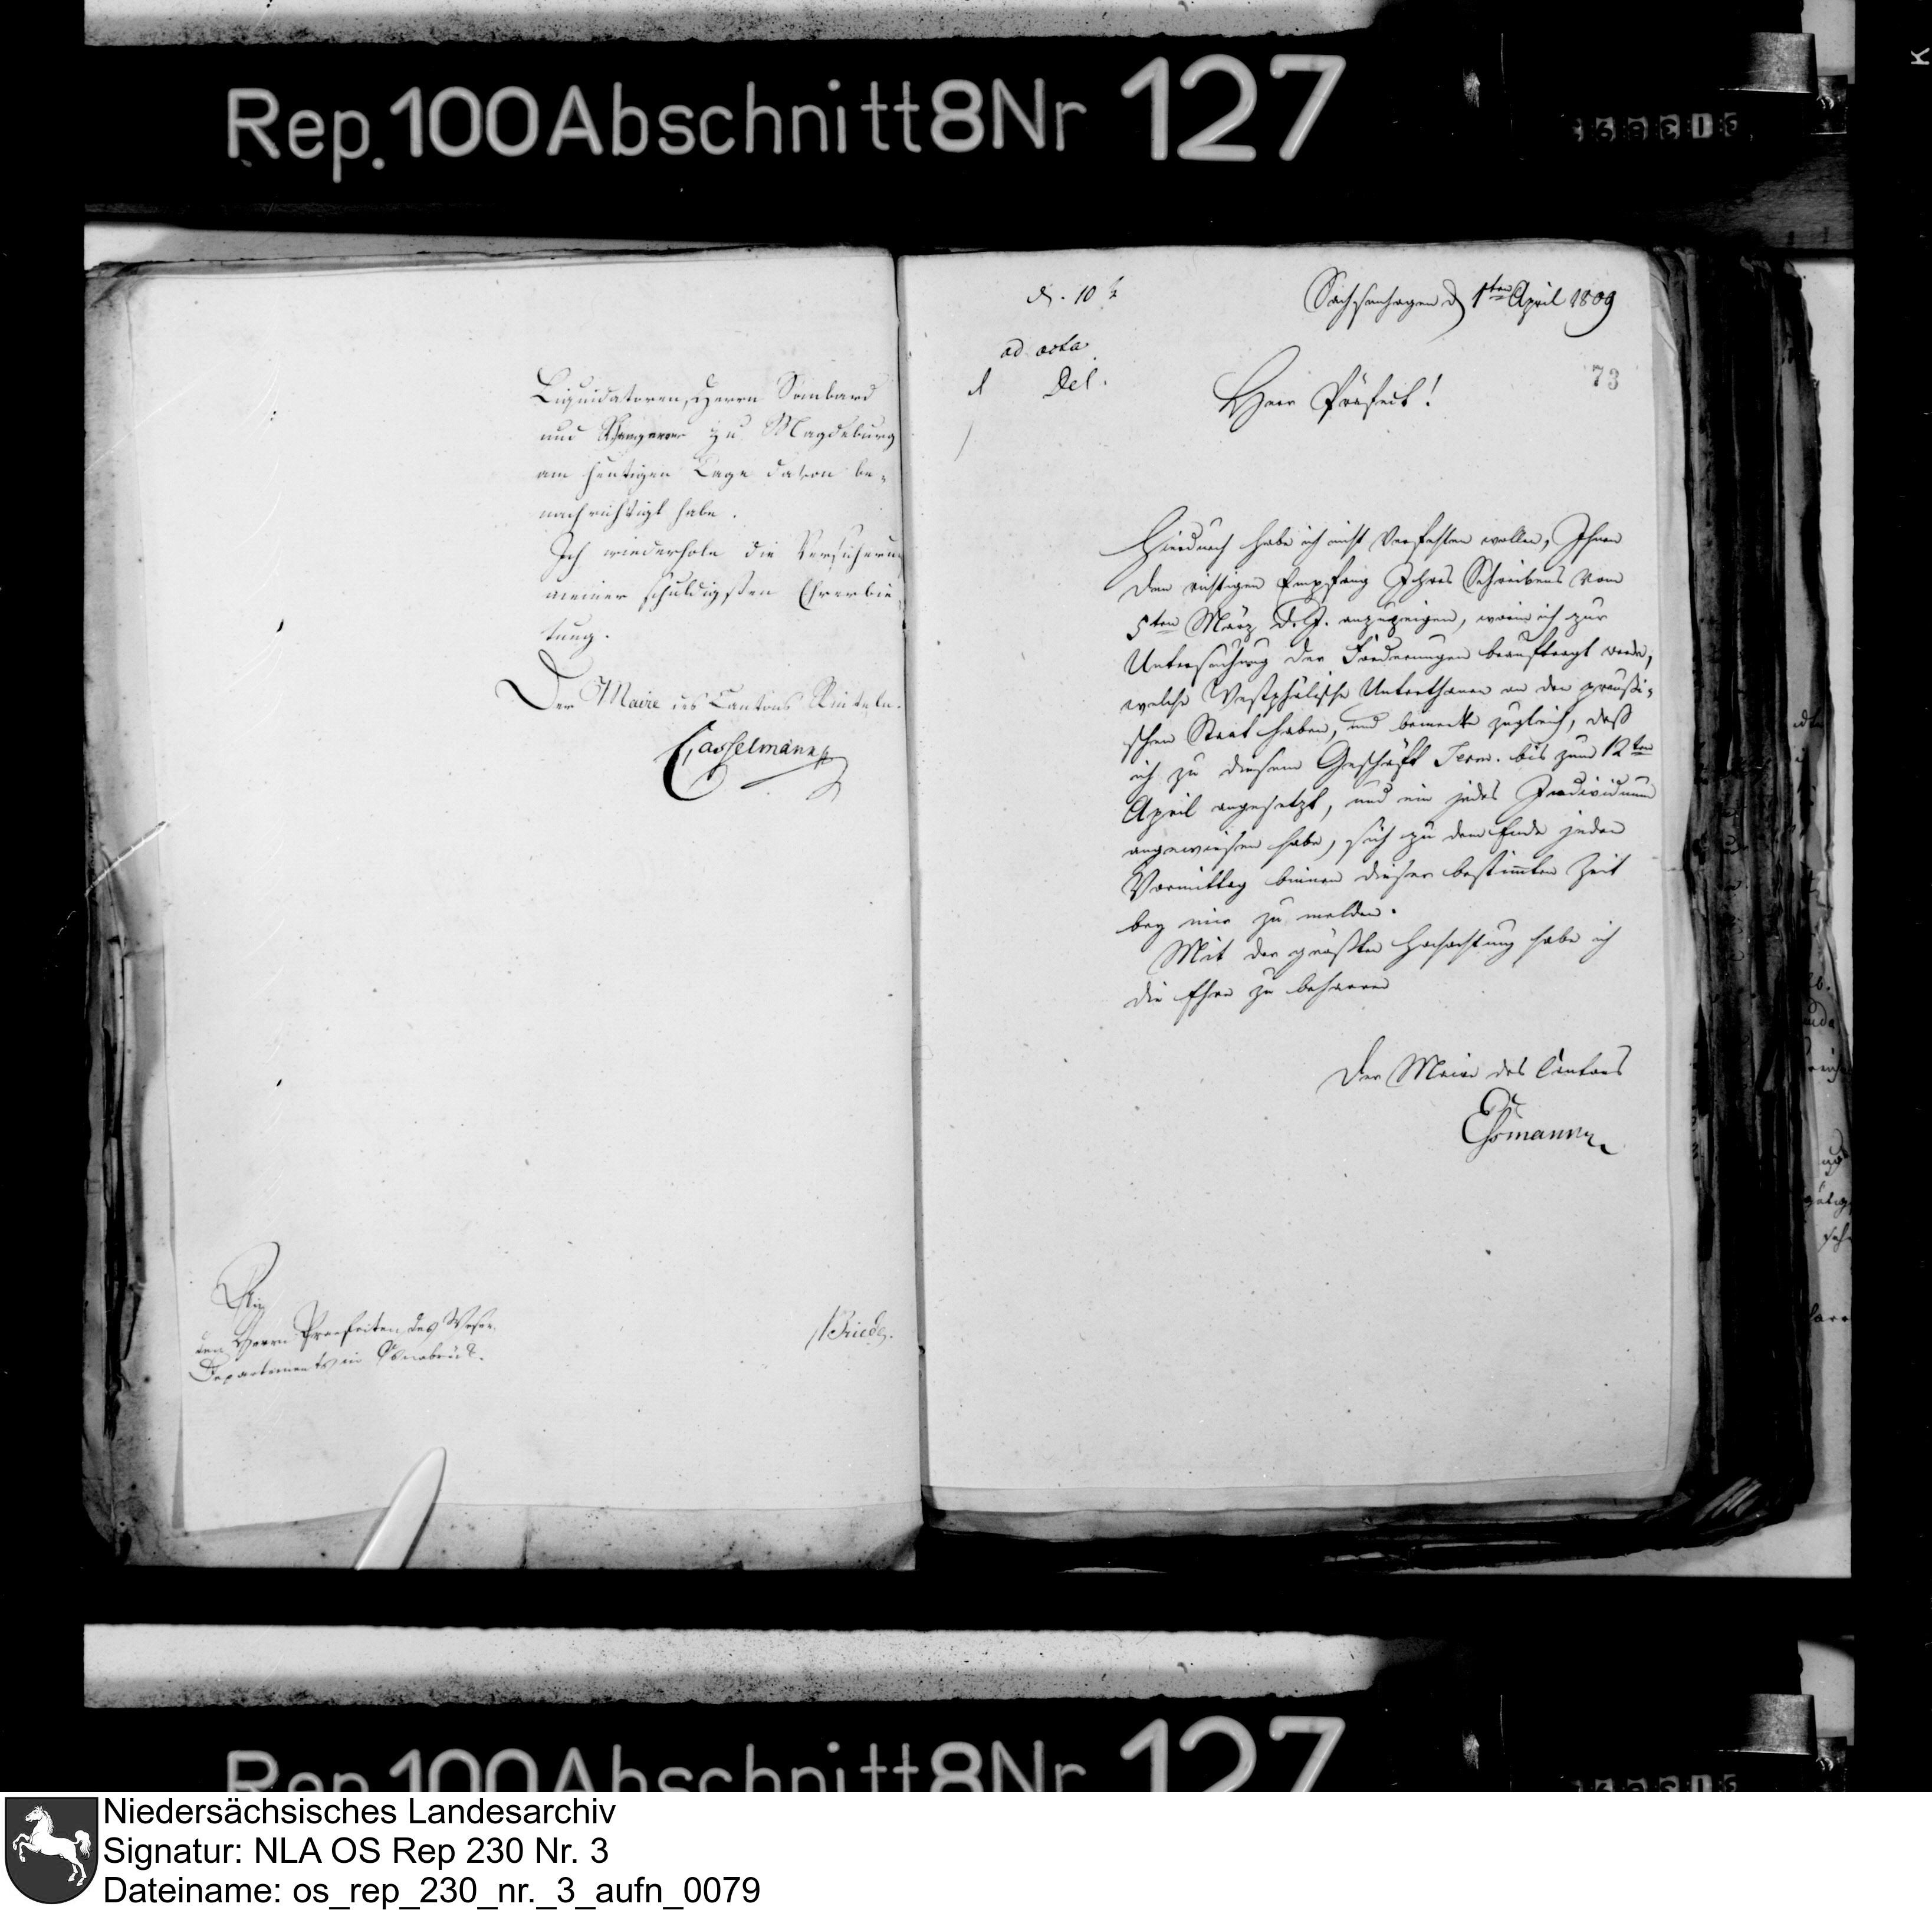 Rep. 100 Abschnitt 8 Nr 127
Liquidatoren, Herrn Sombard
und zu Magdeburg
am heutigen Tage davon be-
nachrichtigt habe.
Ich wiederhole die Versicherung
meiner schuldigsten Ehrerbie-
tung.
Der Maire des Cantons Rinteln.
Casselmann
An
den Herrn Praefecten des Weser-
Departements in Osnabrück.
Sachsenhagen d 1ten April 1809
ad acta
Del.
73
Herr Präfect!
Hierdurch habe ich nicht verfehlen wollen, Ihnen
den richtigen Empfang Ihres Schreibens vom
5ten März d. J. anzuzeigen, worin ich zur
Untersuchung der Forderungen beauftragt werde,
welche Westphälische Unterthanen an den preußi-
schen Staat haben, und bemerke zugleich, daß
ich zu diesem Geschäft Term. bis zum 12ten
April angesetzt, und ein jedes Individuum
angewiesen habe, sich zu dem Ende jeden
Vormittag binnen dieser bestimten Zeit
bey mir zu melden.
Mit der größten Hochachtung habe ich
die Ehre zu beharren
Der Maire des Cantons
Rep. 100 Abschnitt 8 Nr 127
Niedersächsisches Landesarchiv
Signatur: NLA OS Rep 230 Nr. 3
Dateiname: os_rep_230_nr._3_aufn_0079